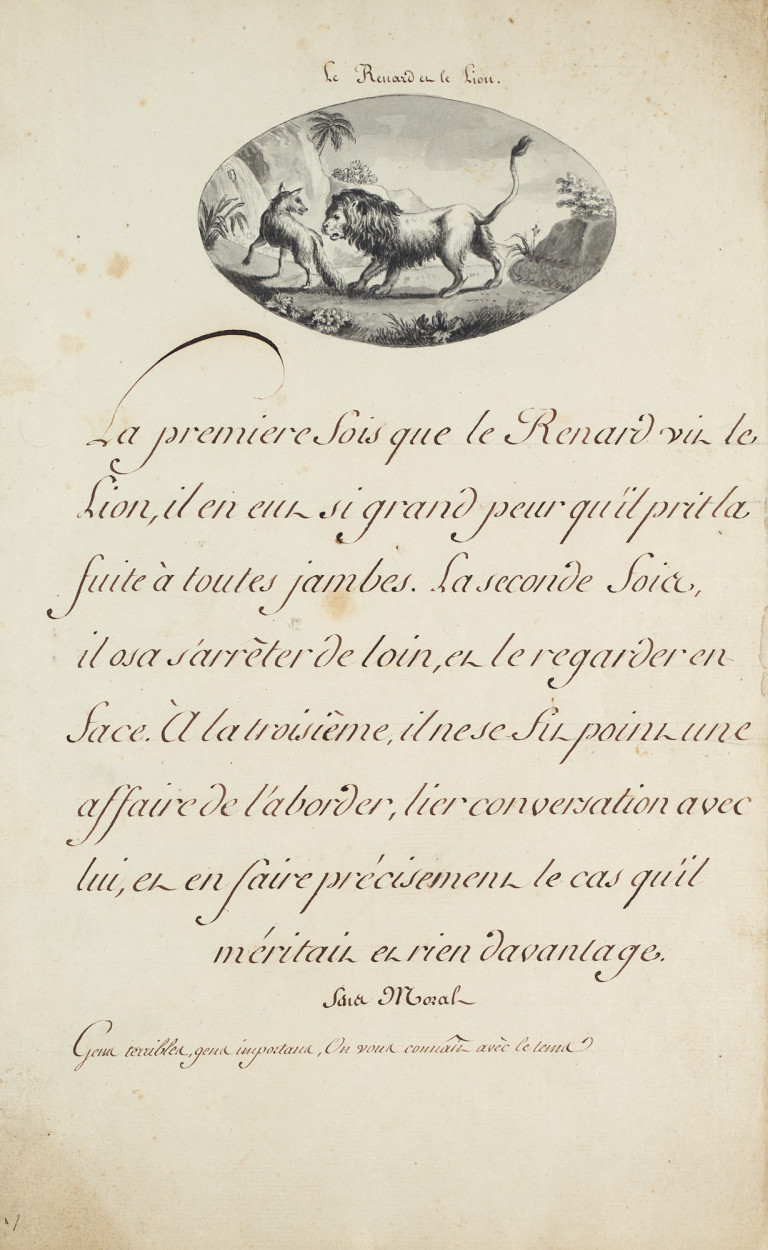 Le Renard et le Lion.
La premiere fois que le Renard vit le
Lion, il en eut si grand peur qu'il prit la
fuite à toutes jambes. La seconde fois,
il osa s'arrêter de loin, et le regarder en
face. À la troisième, il ne se fit point une
affaire de l'aborder, lier conversation avec
lui, et en faire précisement le cas qu'il
méritait et rien davantage.
Sens Moral
Gens terribles, gens importans, On vous connaît avèc le tems